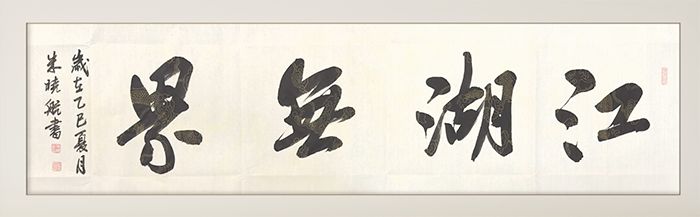 江湖無界
歲在乙巳夏月
朱曉
書